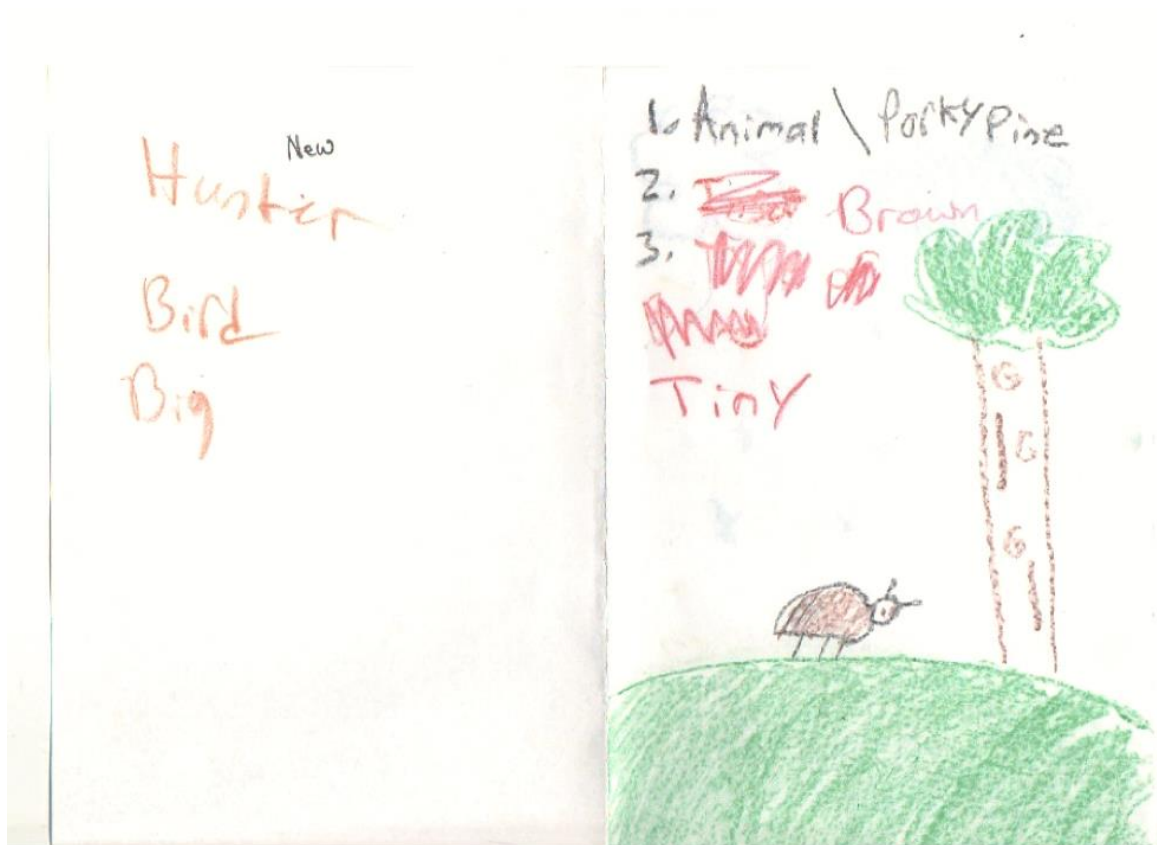 New
Bird
Big
1. Animal \ PorkyPine
2. Brown
3.
Tiny